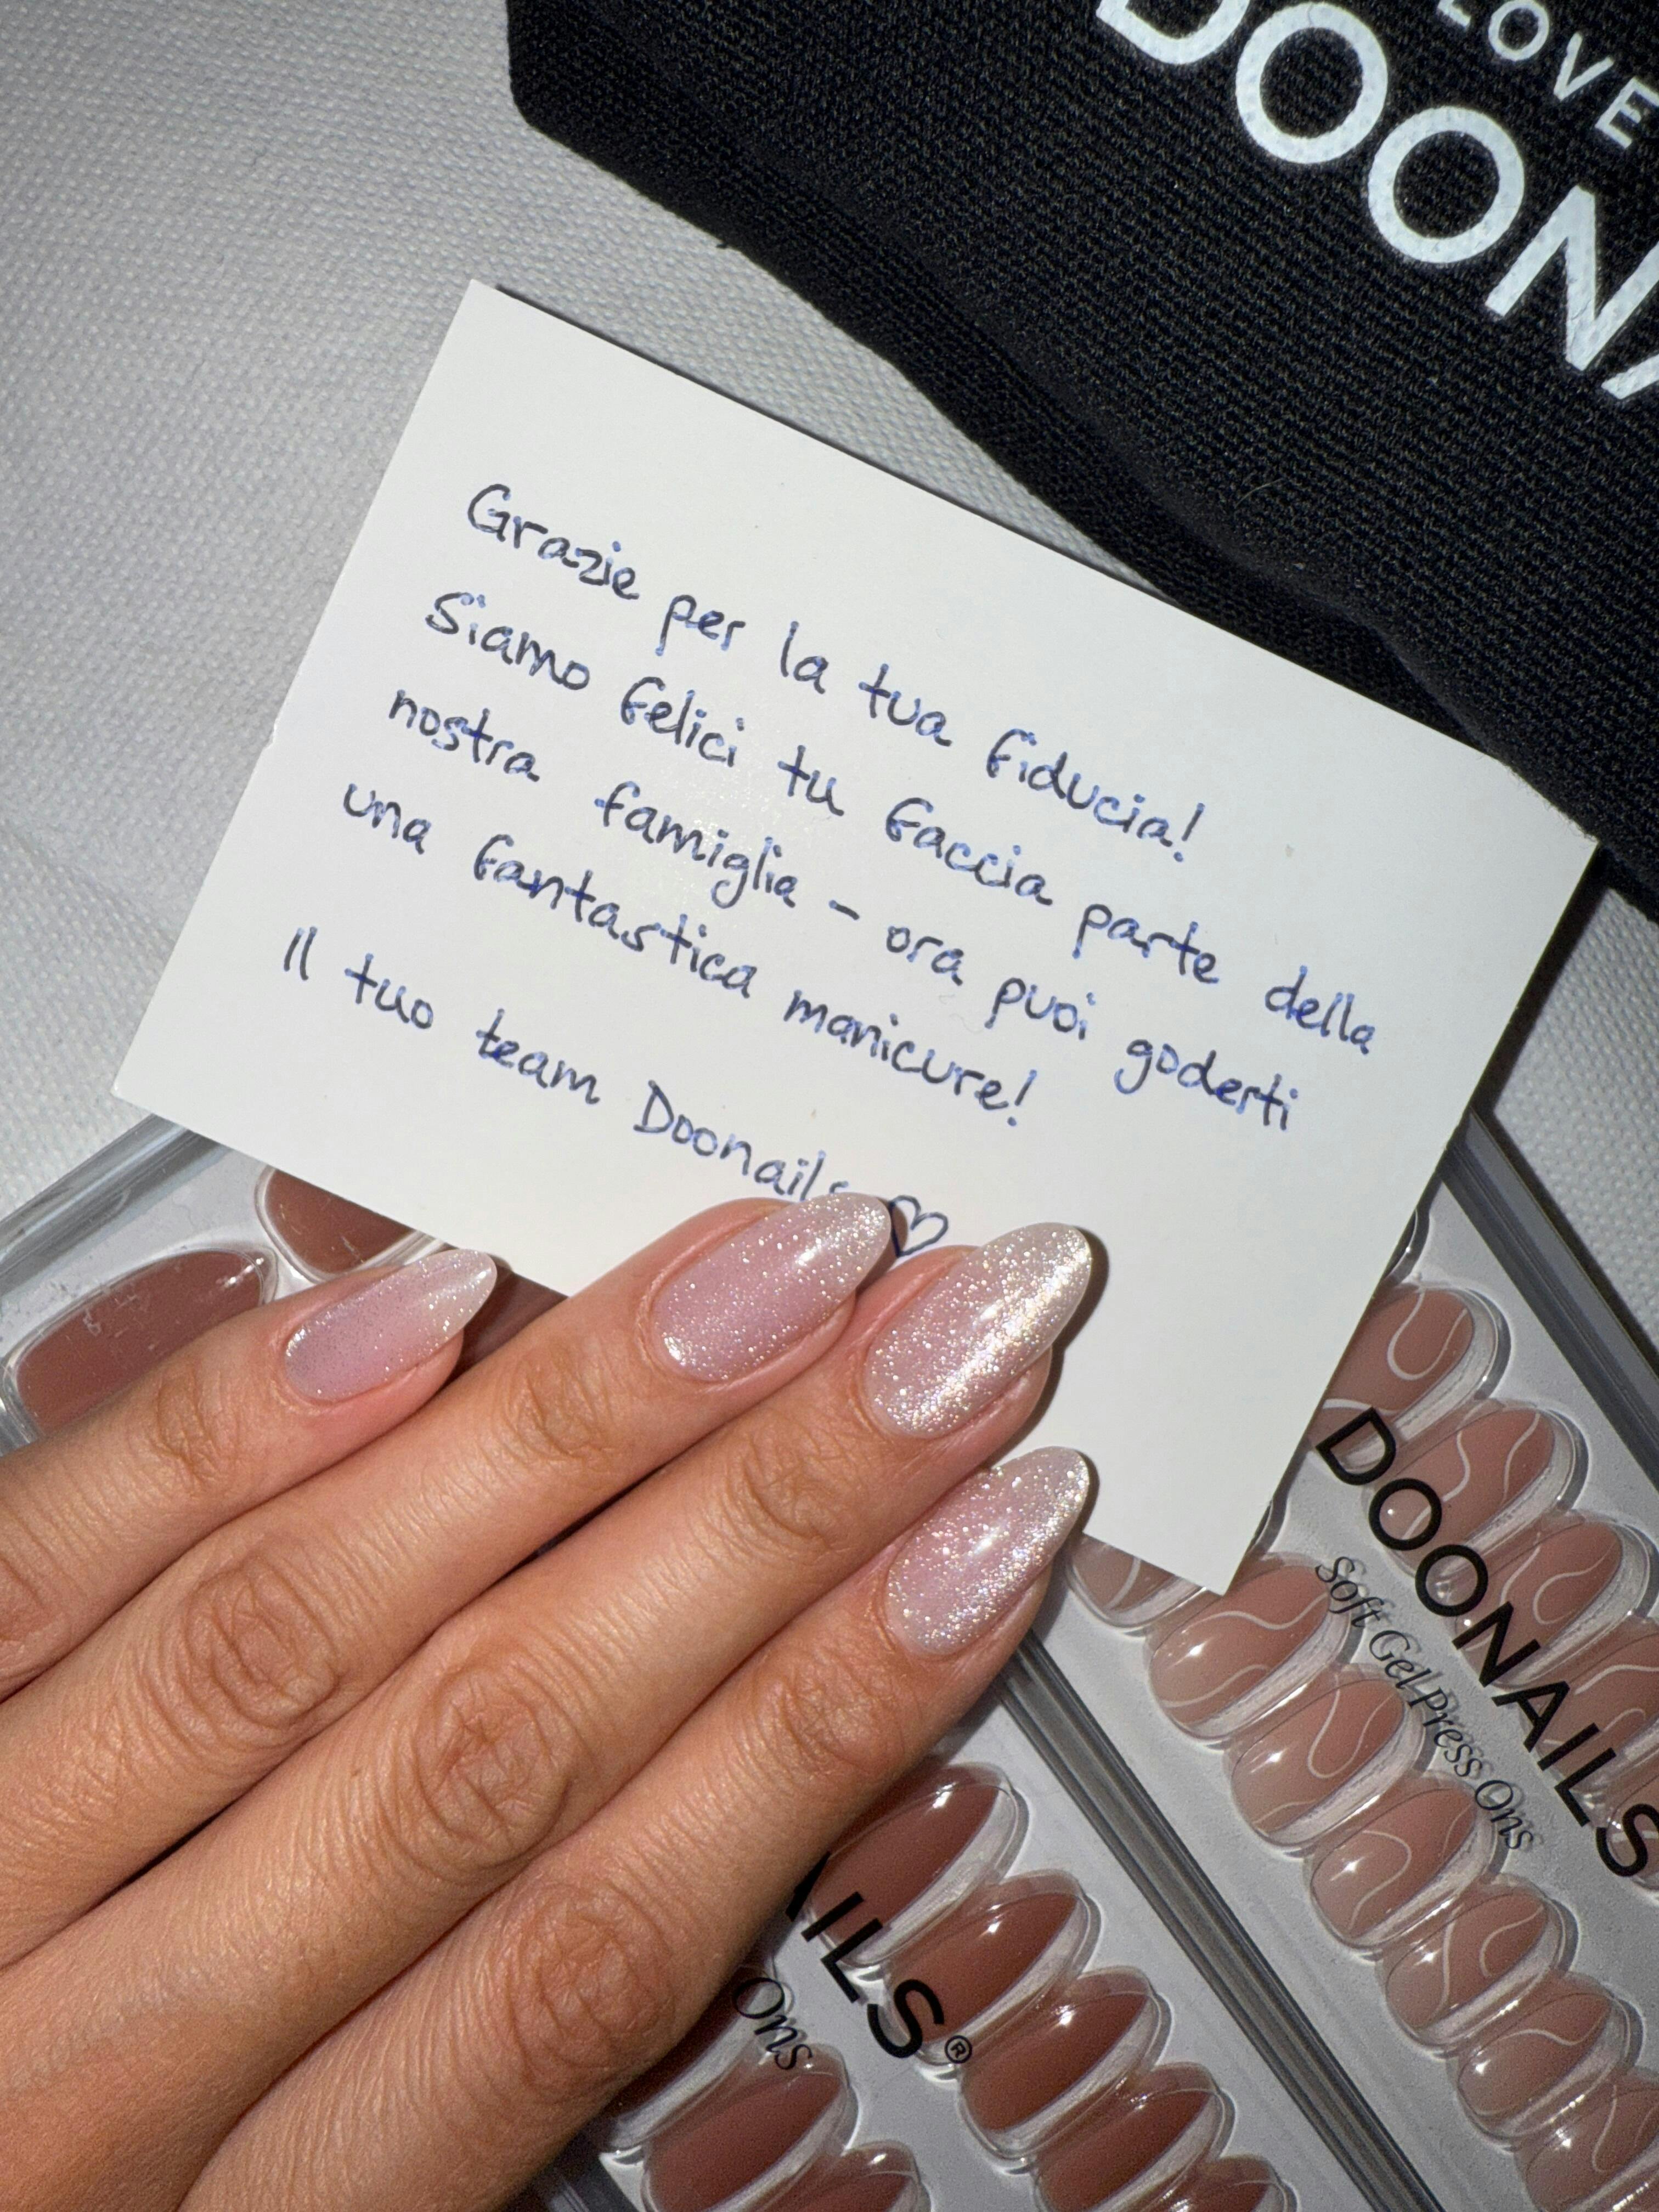 LOVE
DOONA
Grazie per la tua fiducia!
Siamo felici tu faccia parte della
nostra famiglia - ora puoi goderti
una fantastica manicure!
Il tuo team Doonails ♡
DOONAILS
Soft Gel Press Ons
AILS®
Ons